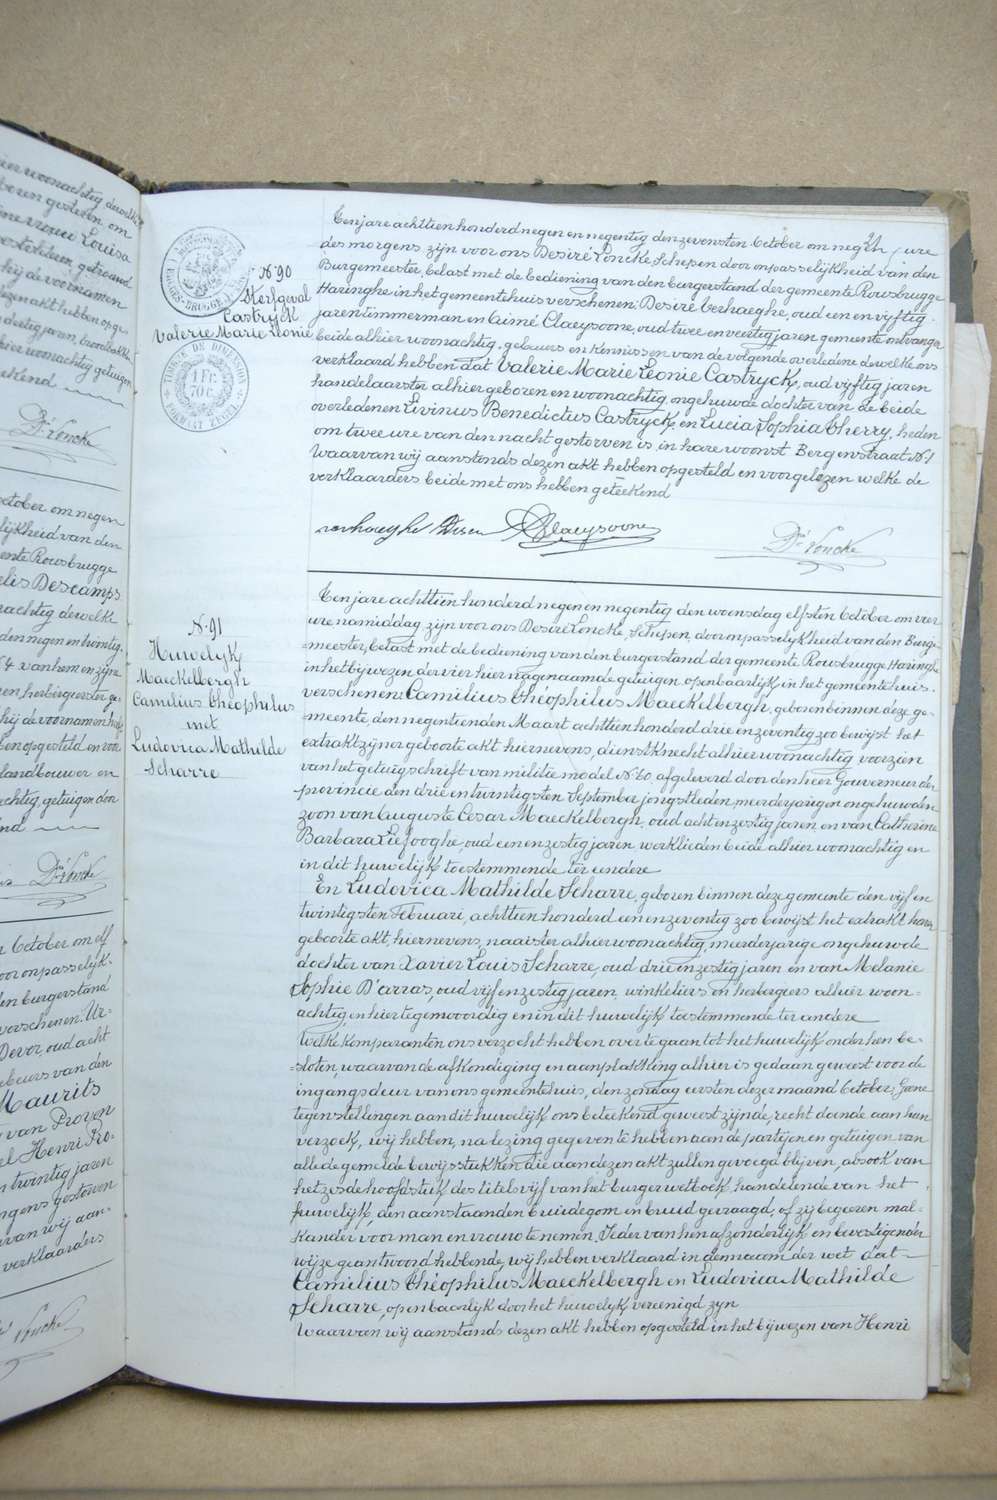 hier woonachtig dewelke
gestorven om
Louisa
getrouwd
hij de voornamen
dezen akt hebben opge-
dertig jaren, broodbakker
hier woonachtig getuigen
teekend
Dré Loncke
October om negen
lijkheid van den
gemeente Rousbrugge
Descamps
woonachtig dewelk
den negen en twintig
64 van hem en zijne
herbergierster ge-
hij de voornamen
hebben opgesteld en voor
landbouwer en
woonachtig, getuigen door
Dré Loncke
October om elf
door onpasselijk-
den burgerstand
verschenen: Ur-
Devos, oud acht
gebeurs van den
Maurits
van Proven
Henri Pro-
twintig jaren
gestorven
waarvan wij aan-
verklaarders
Dré Loncke
N. 90
Sterfgeval
Castryck
Valerie Marie Leonie
TIMBRE DE DIMENSION
1 FR.
70 C.
FORMAAT ZEGEL
Ten jare achttien honderd negen en negentig den zevensten October om negen ure
des morgens zijn voor ons Desiré Loncke, Schepen door onpasselijkheid van den
Burgemeester, belast met de bediening van den burgerstand der gemeente Rousbrugge
Haringhe in het gemeentehuis verschenen: Desiré Verhaeghe, oud een en vyftig
jaren timmerman en Aimé Claeysoone, oud twee en veertig jaren gemeente ontvanger
beide alhier woonachtig, gebeurs en kennissen van de volgende overledene dewelke ons
verklaard hebben dat Valerie Marie Leonie Castryck, oud vijftig jaren
handelaarster alhier geboren en woonachtig ongehuwde dochter van de beide
overledenen Livinus Benedictus Castryck en Lucia Sophia Cherry, heden
om twee ure van den nacht gestorven is in hare woonst Bergenstraat N. 1
Waarvan wij aanstonds dezen akt hebben opgesteld en voorgelezen welke de
verklaarders beide met ons hebben geteekend
verhaeghe Desiré A Claeysoone Dré Loncke
N. 91
Huwelijk
Maeckelbergh
Camilius Théophilus
met
Ludovica Mathilde
Scharre
Ten jare achttien honderd negen en negentig den woensdag elfsten October om vier
ure namiddag zijn voor ons Desiré Loncke, Schepen, door onpasselijkheid van den Burge-
=meester, belast met de bediening van den burgerstand der gemeente Rousbrugge Haringhe
in het bijwezen der vier hier nagenaamde getuigen openbaarlijk in het gemeentehuis.
verschenen: Camilius Théophilus Maeckelbergh, geboren binnen deze ge-
meente, den negentienden Maart achttien honderd drie en zeventig zoo bewijst het
extrakt zijner geboorte akt hiernevens, dienstknecht alhier woonachtig voorzien
van het getuigschrift van militie model N. 60 afgeleverd door den heer Gouverneur der
provincie den drie en twintigsten September jongstleden, meerderjarigen ongehuwden
zoon van Auguste Cesar Maeckelbergh, oud acht en zestig jaren, en van Catherine
Barbara Liefooghe, oud een en zestig jaren werklieden beide alhier woonachtig en
in dit huwelijk toestemmende ter eendere
En Ludovica Mathilde Scharre, geboren binnen deze gemeente den vijf en
twintigsten Februari, achttien honderd een en zeventig zoo bewijst het extrakt harer
geboorte akt, hiernevens, naaister alhier woonachtig, meerderjarige ongehuwde
dochter van Xavier Louis Scharre, oud drie en zestig jaren en van Melanie
Sophie D'arras, oud vijf en zestig jaren, winkeliers en herbergiers alhier woon-
achtig, en hier tegenwoordig en in dit huwelijk toestemmende ter andere
Welke komparanten ons verzocht hebben over te gaan tot het huwelijk onder hen be-
=sloten, waarvan de afkondiging en aanplakking alhier is gedaan geweest voor de
ingangsdeur van ons gemeentehuis, den zondag eersten dezer maand October; Geene
tegenstellingen aan dit huwelijk ons beteekend geweest zijnde, recht doende aan hun
verzoek, wij hebben, na lezing gegeven te hebben aan de partijen en getuigen van
alle de gemelde bewijsstukken die aan dezen akt zullen gevoegd blijven, alsook van
het zesde hoofdstuk des titels vijf van het burger wetboek handelende van het
huwelijk, den aanstaanden bruidegom en bruid gevraagd, of zij begeeren mal-
kander voor man en vrouw te nemen. Ieder van hen afzonderlijk en bevestigender
wijze geantwoord hebbende, wij hebben verklaard in den naam der wet dat
Camilius Théophilus Maeckelbergh en Ludovica Mathilde
Scharre, openbaarlijk door het huwelijk vereenigd zijn
Waarvan wij aanstonds dezen akt hebben opgesteld in het bijwezen van Henri